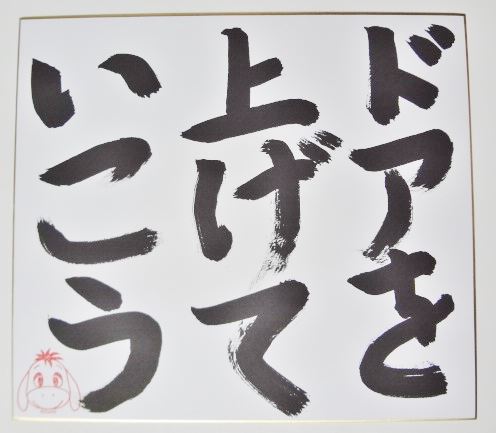 ドアを
上げて
いこう